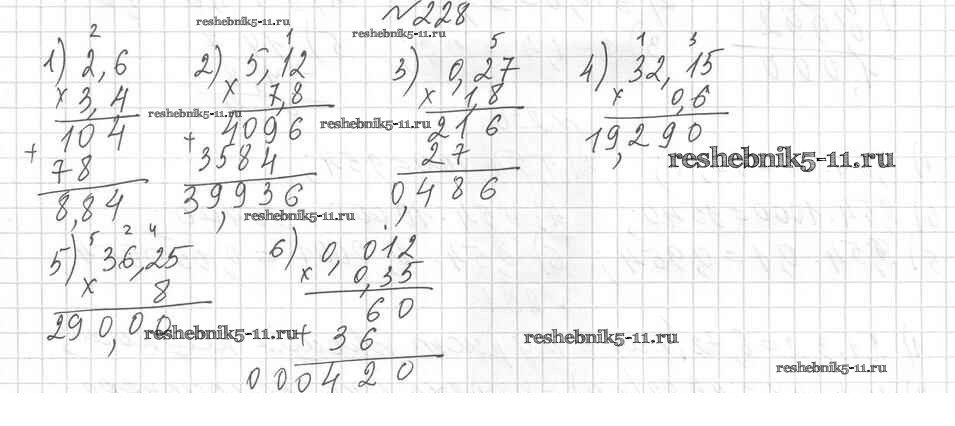 №228
reshebnik5-11.ru
reshebnik5-11.ru
1) 2,6
2
x 3,4
104
+ 78
8,84
2) 5,12
1
x 7,8
4096
+ 3584
39,936
3) 0,27
5
x 1,8
216
27
0,486
4) 32,15
1 3
x 0,6
19,290
reshebnik5-11.ru
reshebnik5-11.ru
reshebnik5-11.ru
reshebnik5-11.ru
5) 36,25
5 2 4
x 8
290,00
6) 0,012
x 0,35
60
+ 36
000420
reshebnik5-11.ru
reshebnik5-11.ru
reshebnik5-11.ru